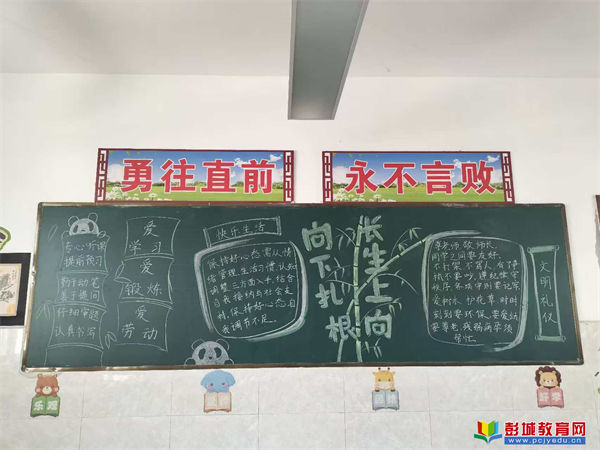 勇往直前
永不言败
专心听课
提前预习
勤动笔
善于提问
仔细审题
认真书写
爱
学习
爱
锻炼
爱
劳动
快乐生活
保持好心态需从情
绪管理.生活习惯.认知
调整三方面入手.结合
自我接纳与社会支
持.保持好心态自
我调节不足。
向下扎根
长生上向
尊老师 敬师长,
同学之间要友好,
不打架 不骂人 有了
不要吵 遵纪律守
秩序 各项守则要记牢
爱树木 护花草 时时
刻刻要环保 要爱幼
要尊老 残弱病孕须
帮忙.
文明礼仪
乐观
好学
彭城教育网
www.pcjyedu.cn